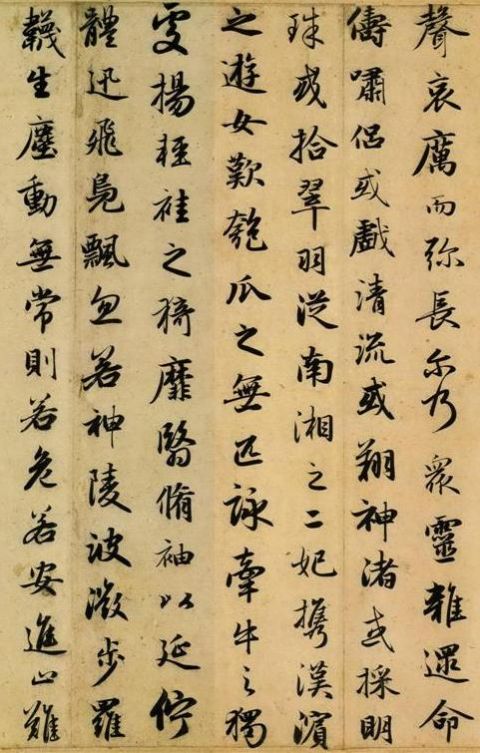 聲哀厲而弥長尔乃衆靈雜遝命
儔嘯侣或戲清流或翔神渚或採明
珠或拾翠羽從南湘之二妃攜漢濱
之遊女歎匏瓜之無匹詠牽牛之獨
處揚輕袿之猗靡翳脩袖以延佇
體迅飛鳧飄忽若神陵波微步羅
韈生塵動無常則若危若安進止難